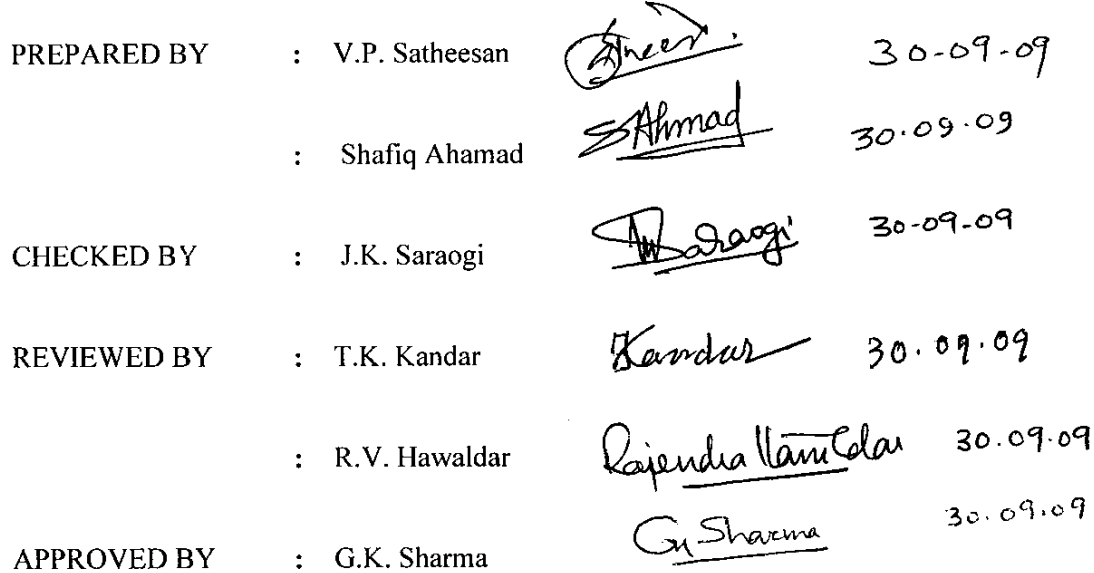 PREPARED BY : V.P. Satheesan 30-09-09
: Shafiq Ahamad SAhmad 30.09.09
CHECKED BY : J.K. Saraogi Saraogi 30-09-09
REVIEWED BY : T.K. Kandar Kandar 30.09.09
: R.V. Hawaldar Rajendra 30.09.09
APPROVED BY : G.K. Sharma Sharma 30.09.09